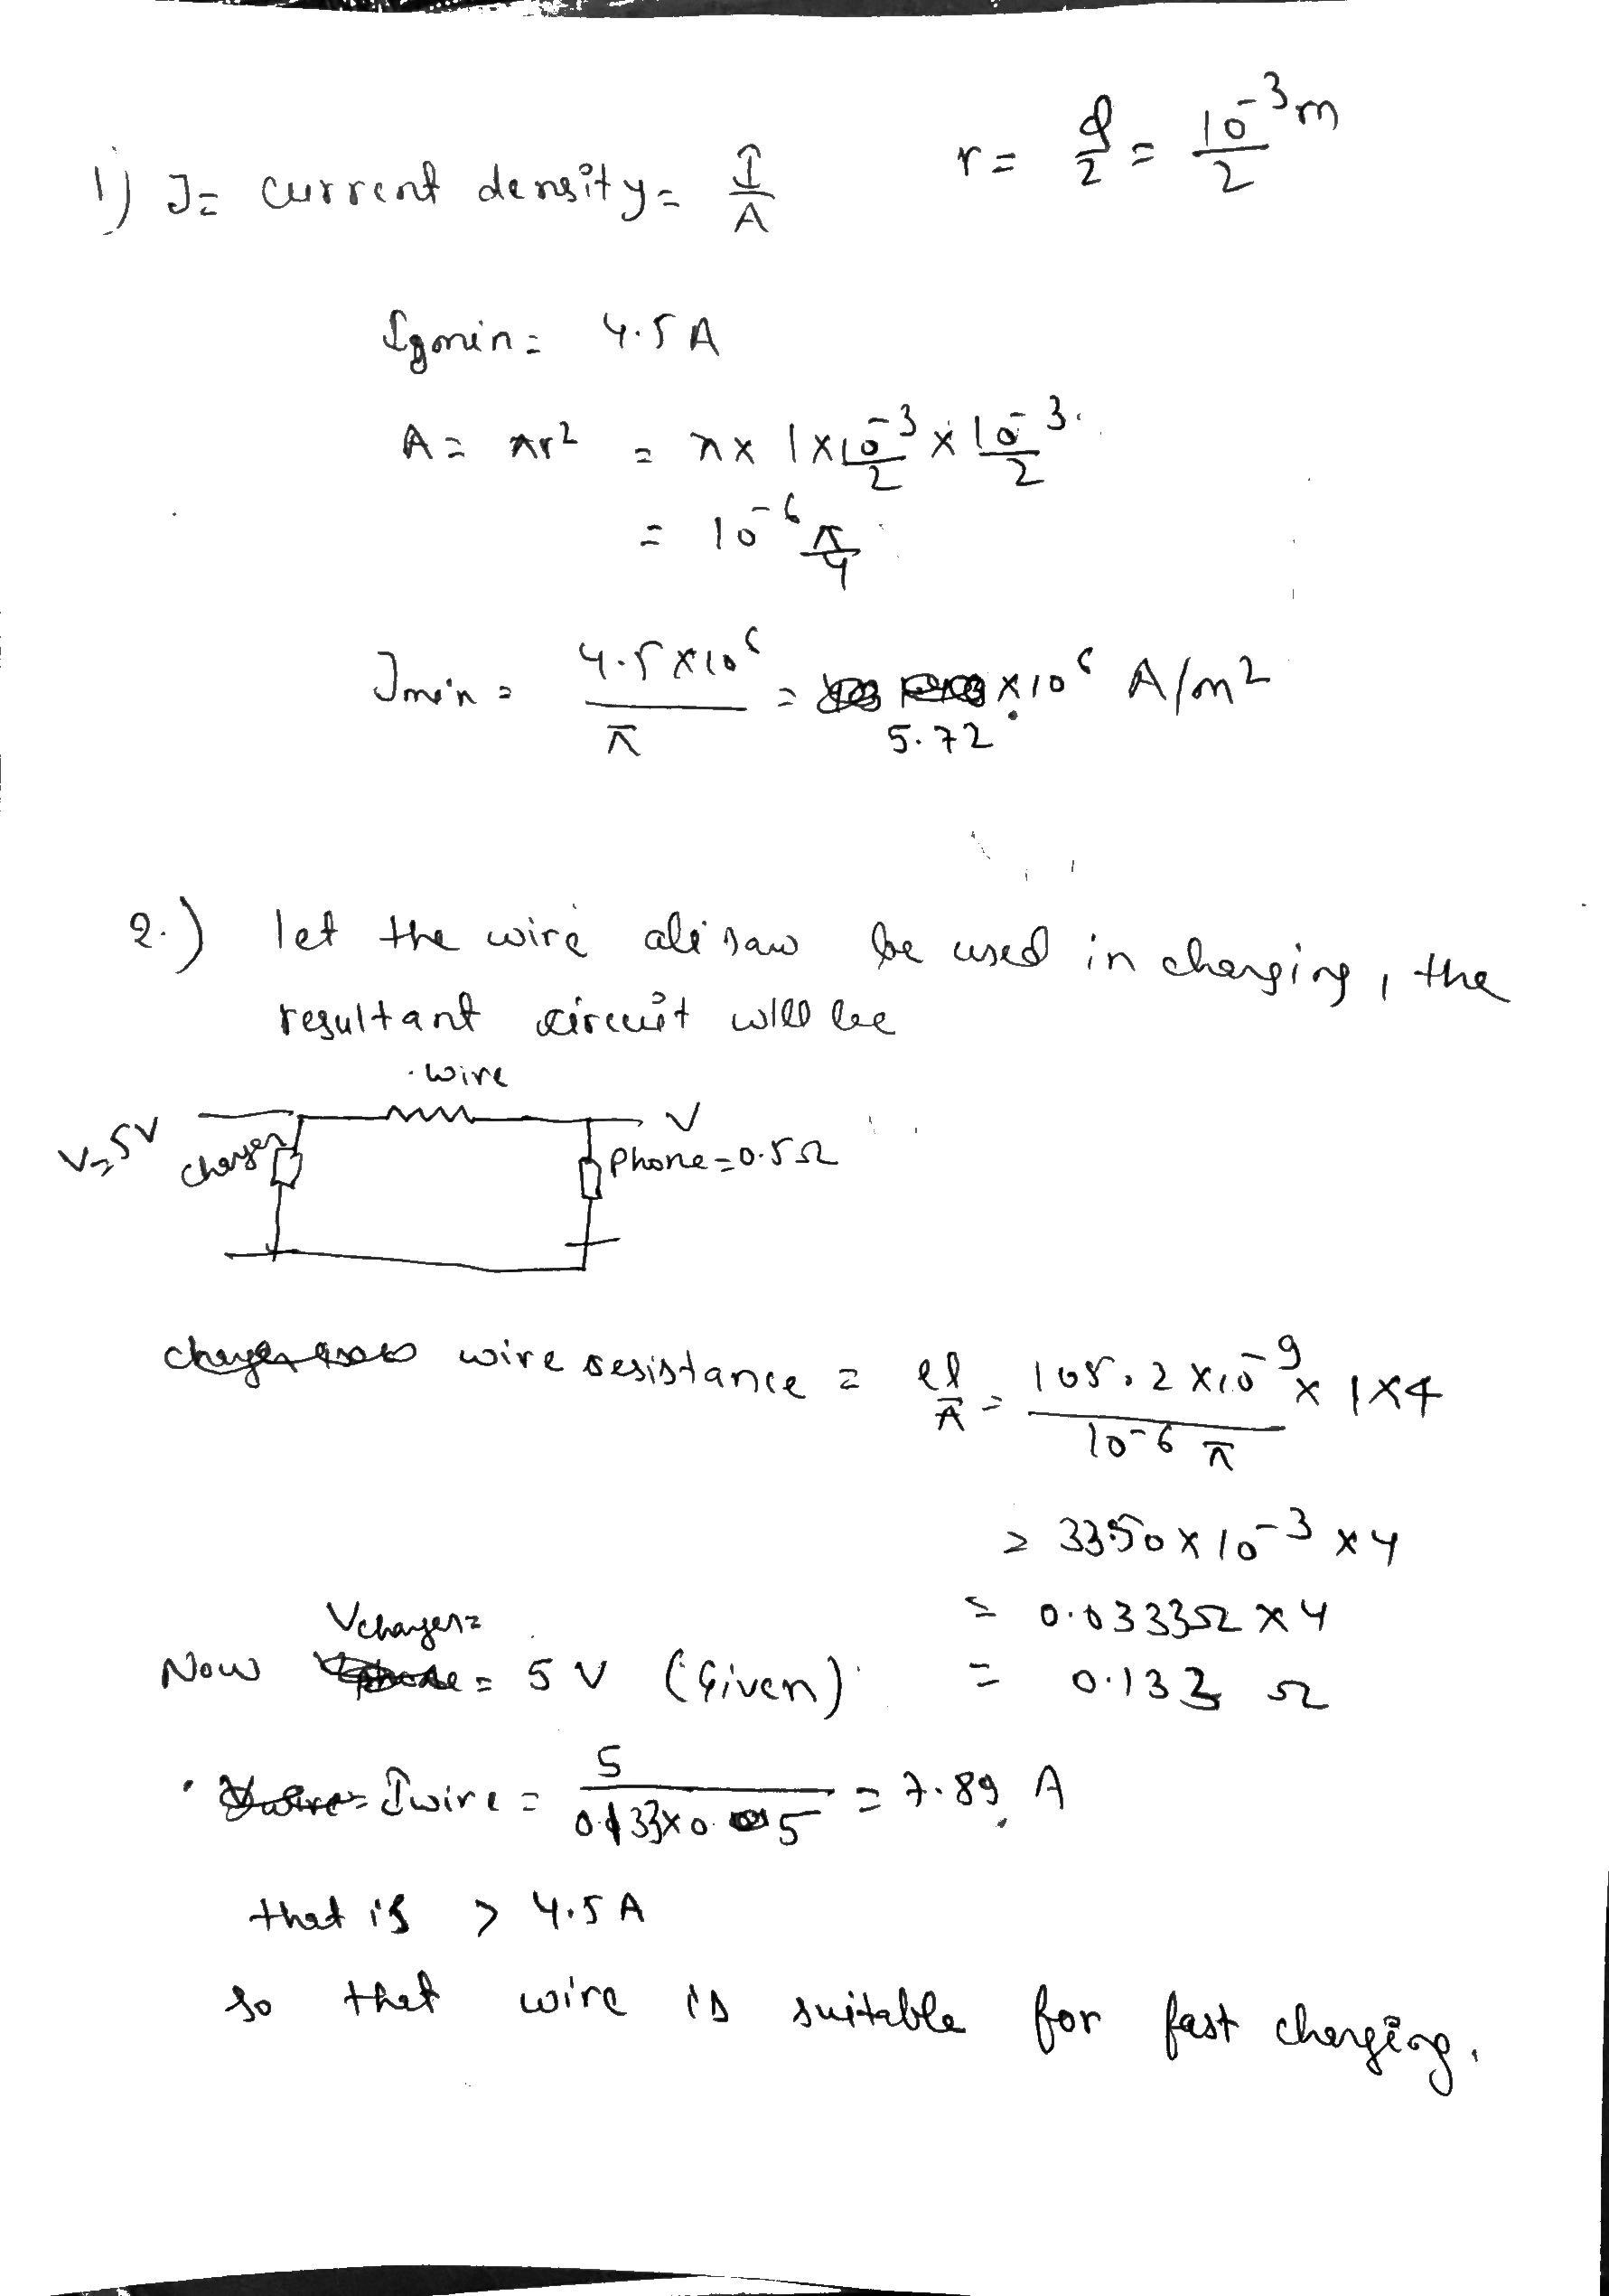 r = d/2 = 10^-3 m/2
1) J = current density = I/A
I_min = 4.5 A
A = πr² = π × 1×10^-3/2 × 10^-3/2
= 10^-6 π/4
J_min = 4.5×10^6/π = ×10^6 A/m²
5.72
2.) let the wire ali saw be used in charging, the
resultant circuit will be
wire
V=5V
charger
V
Phone = 0.5Ω
wire resistance = ρl/A = 105.2×10^-9 × 1×4/10^-6 π
= 33.50 × 10^-3 × 4
= 0.0333Ω × 4
= 0.133 Ω
Now Vcharger = 5 V (Given)
I wire = 5/0.133×0.5 = 7.89 A
that is > 4.5 A
so that wire is suitable for fast charging.